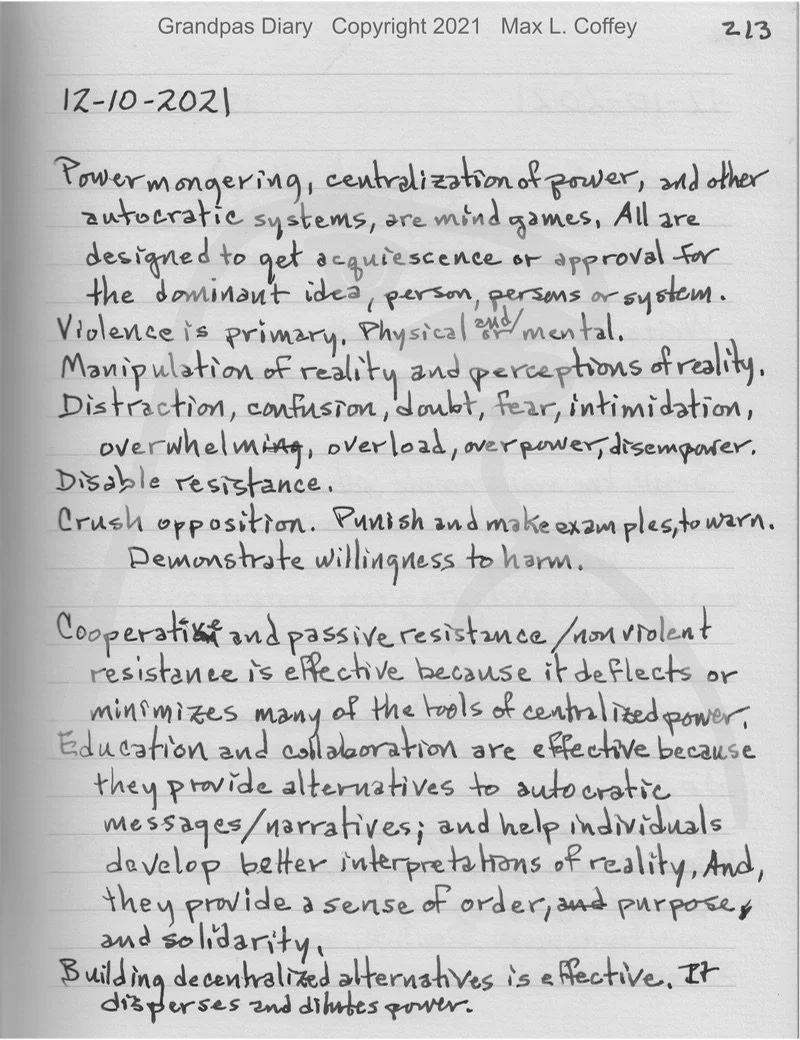 Grandpas Diary Copyright 2021 Max L. Coffey
213
12-10-2021
Powermongering, centralization of power, and other
autocratic systems, are mind games. All are
designed to get acquiescence or approval for
the dominant idea, person, persons or system.
Violence is primary. Physical and/or mental.
Manipulation of reality and perceptions of reality.
Distraction, confusion, doubt, fear, intimidation,
overwhelming, overload, overpower, disempower.
Disable resistance.
Crush opposition. Punish and make examples, to warn.
Demonstrate willingness to harm.
Cooperative and passive resistance/nonviolent
resistance is effective because it deflects or
minimizes many of the tools of centralized power.
Education and collaboration are effective because
they provide alternatives to autocratic
messages/narratives; and help individuals
develop better interpretations of reality. And,
they provide a sense of order, and purpose,
and solidarity.
Building decentralized alternatives is effective. It
disperses and dilutes power.